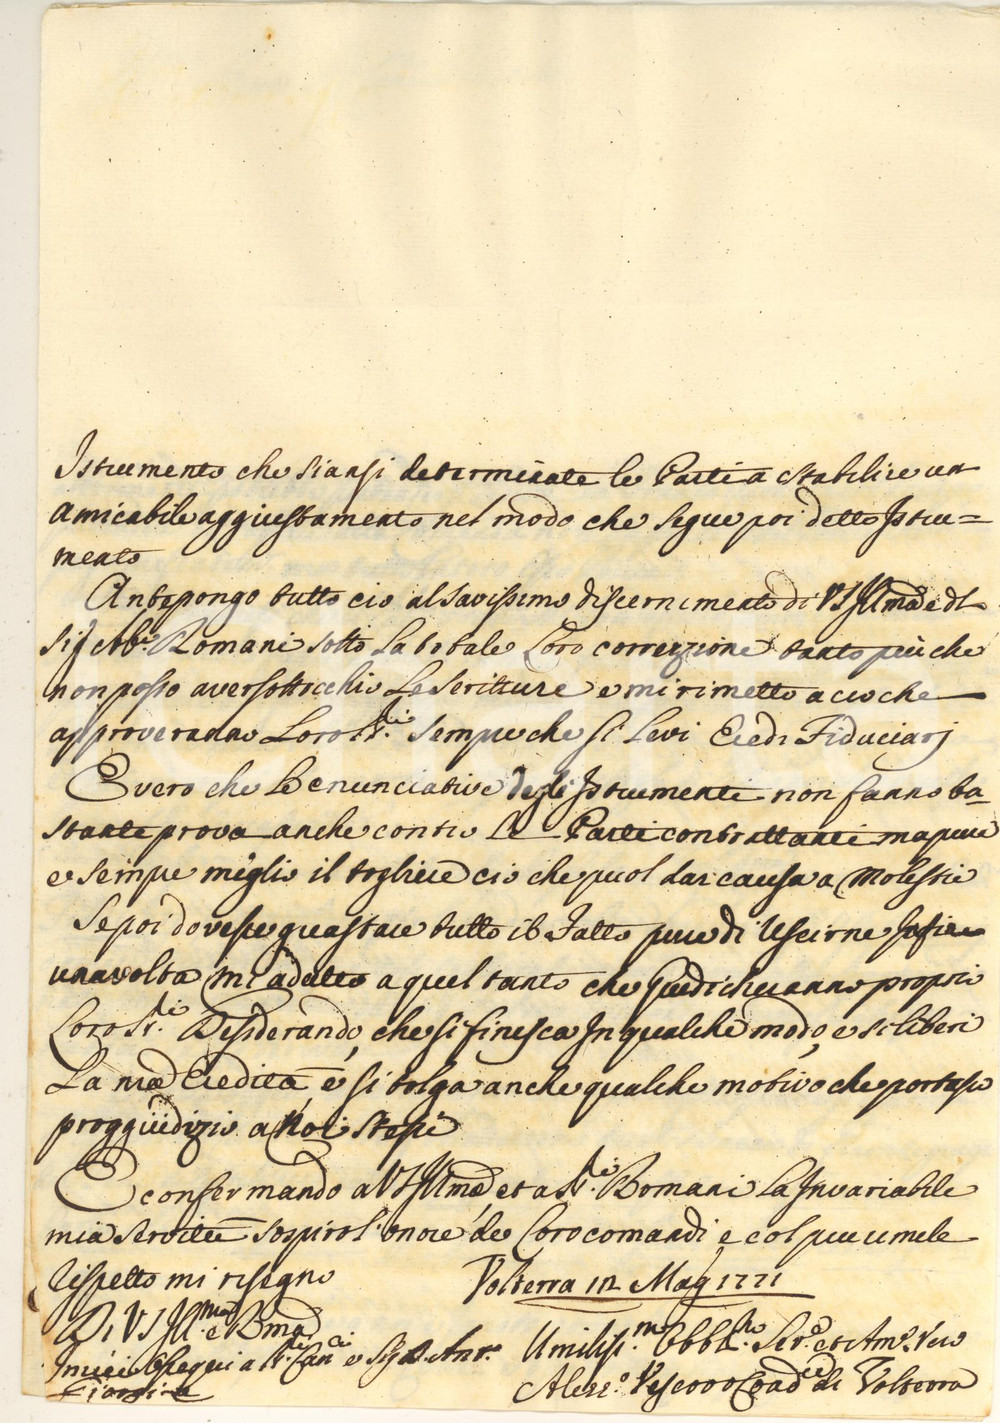 Istrumento che siansi determinate le Parti a stabilire un
amicabile aggiustamento nel modo che segue poi detto Istru=
mento
Antepongo tutto cio al savissimo discernimento di VS Illma e del
Sig Abe Romani sotto la totale Loro correzione tanto più che
non posso aver sottocchio Le Scritture e mi rimetto a cio che
approveranno Loro Sri sempre che si levi Eredi Fiduciarj
E vero che Le enunciative degli Istrumenti non fanno ba=
stante prova anche contro le Parti contrattanti ma pure
e sempre meglio il togliere cio che puol dar causa a Molestie
Se poi dovesse guastare tutto il Fatto pure di Uscirne
una volta mi adatto a quel tanto che Giudicheranno proprio
Loro Sri Desiderando, che si finisca In qualche modo, e si liberi
La mad Eredità, e si tolga anche qualche motivo che portasse
preggiudizio a Noi stessi
E confermando a VS Illma et a Sri Romani La Invariabile
mia servitu sospiro l'onore de Loro comandi e col piu umile
rispetto mi risegno
Volterra 12 Mag 1771
Di VS Illma e Rma
I miei Ossequi a e Sig D. Anto
Umilissmo Obblmo Sere et Amo Vero
Aless.o Vescovo Coadre di Volterra